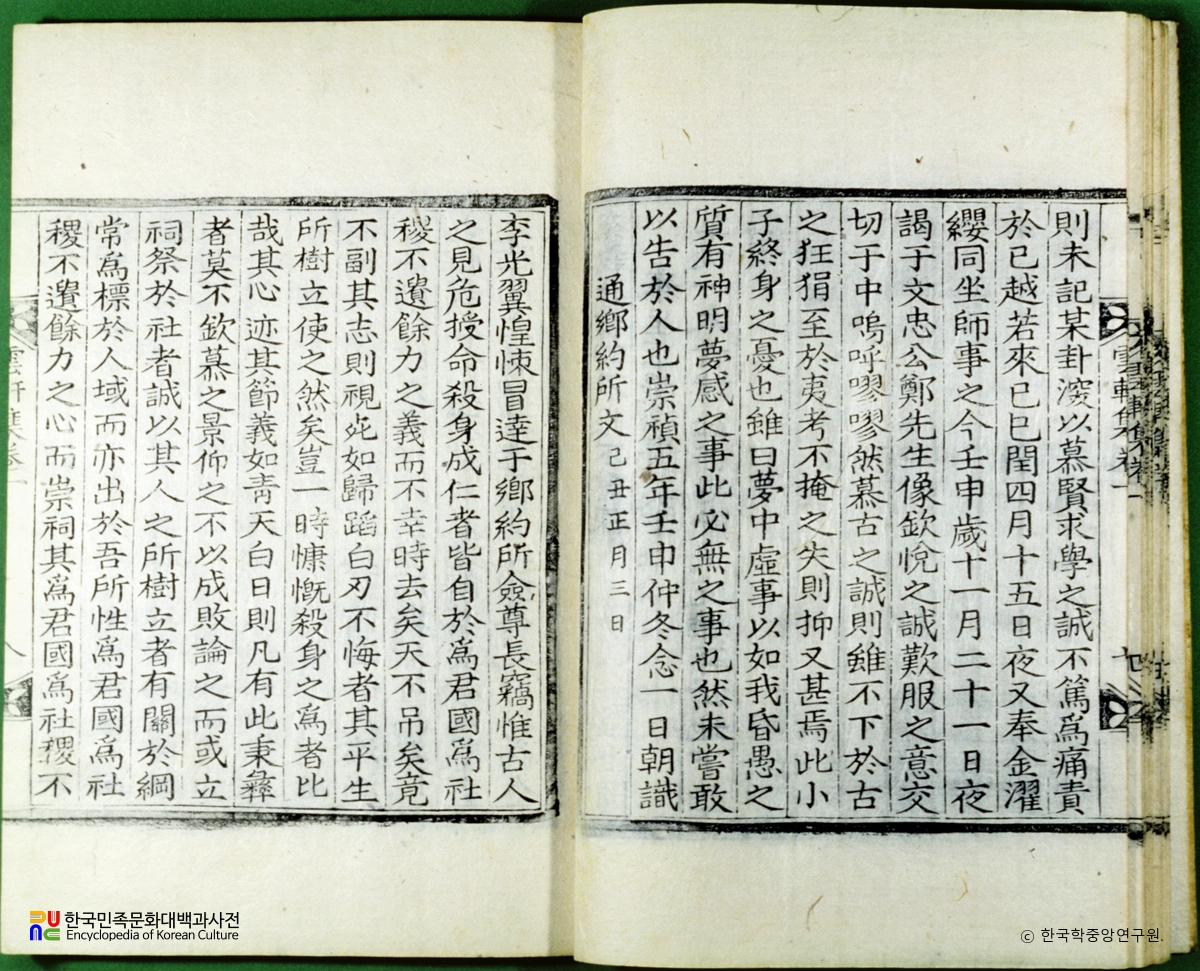 則未記某卦濅以慕賢求學之誠不篤爲痛責
於已越若來已巳閏四月十五日夜又奉金濯
纓同坐師事之今壬申歲十一月二十一日夜
謁于文忠公鄭先生像欽悅之誠歎服之意交
切于中嗚呼嘐嘐然慕古之誠則雖不下於古
之狂狷至於夷考不掩之失則抑又甚焉此小
子終身之憂也雖曰夢中虛事以如我昏愚之
質有神明夢感之事此必無之事也然未嘗敢
以告於人也崇禎五年壬申仲冬念一日朝識
通鄉約所文 己丑正月三日
李光翼惶悚冒達于鄉約所僉尊長竊惟古人
之見危授命殺身成仁者皆自於爲君國爲社
稷不遺餘力之義而不幸時去矣天不吊矣竟
不副其志則視死如歸蹈白刃不悔者其平生
所樹立使之然矣豈一時慷慨殺身之爲者比
哉其心迹其節義如靑天白日則凡有此秉彝
者莫不欽慕之景仰之不以成敗論之而或立
祠祭於社者誠以其人之所樹立者有關於綱
常爲標於人域而亦出於吾所性爲君國爲社
稷不遺餘力之心而崇祠其爲君國爲社稷不
雲軒集卷一
한국민족문화대백과사전
Encyclopedia of Korean Culture
ⓒ 한국학중앙연구원.